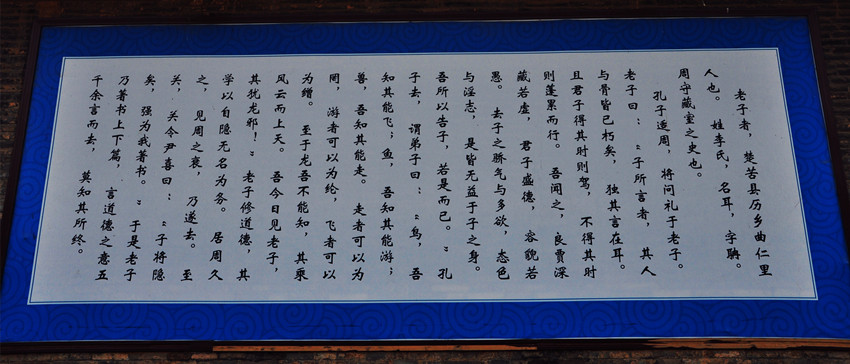 老子者，楚苦县历乡曲仁里
人也。姓李氏，名耳，字聃。
周守藏室之史也。
孔子适周，将问礼于老子。
老子曰：“子所言者，其人
与骨皆已朽矣，独其言在耳。
且君子得其时则驾，不得其时
则蓬累而行。吾闻之，良贾深
藏若虚，君子盛德，容貌若
愚。去子之骄气与多欲，态色
与淫志，是皆无益于子之身。
吾所以告子，若是而已。”孔
子去，谓弟子曰：“鸟，吾
知其能飞；鱼，吾知其能游；
兽，吾知其能走。走者可以为
罔，游者可以为纶，飞者可以
为缯。至于龙吾不能知，其乘
风云而上天。吾今日见老子，
其犹龙邪！”老子修道德，其
学以自隐无名为务。居周久
之，见周之衰，乃遂去。至
关，关令尹喜曰：“子将隐
矣，强为我著书。”于是老子
乃著书上下篇，言道德之意五
千余言而去，莫知其所终。